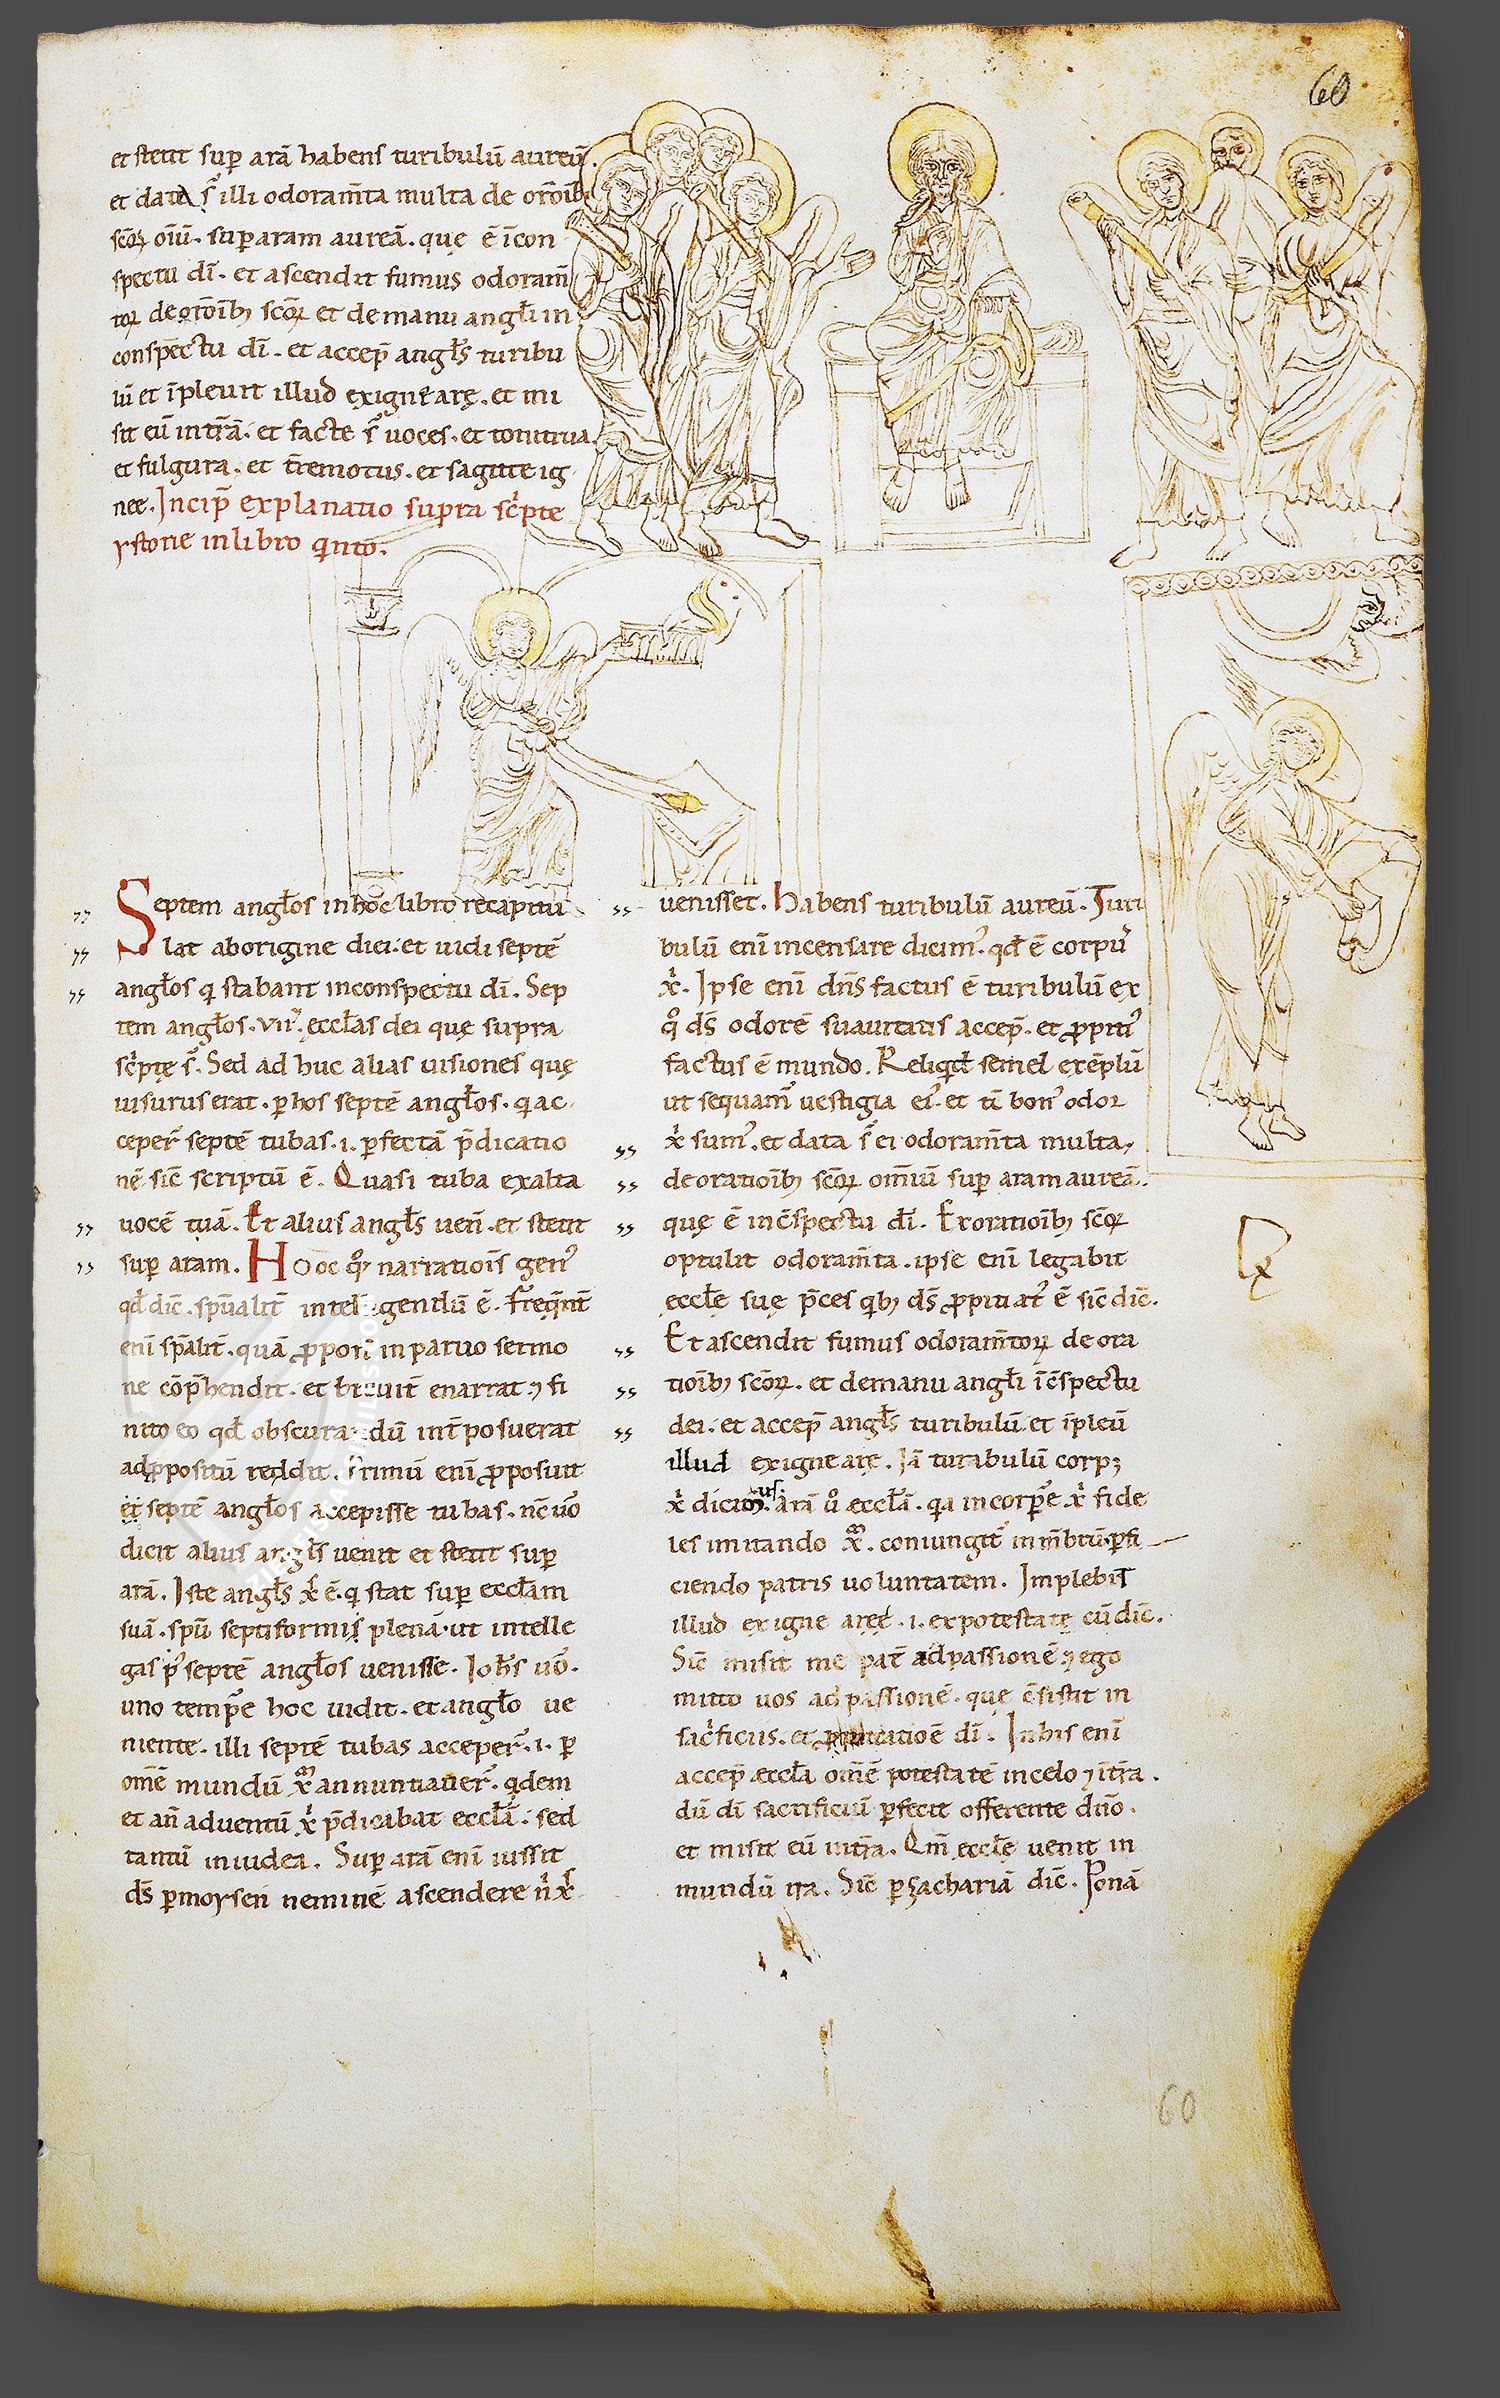 60
et stetit sup̄ arā habens turibulū aureū.
et data s̄ illi odoram̄ta multa de or̄oib;
sc̄oꝝ oīū. sup aram aureā. quę ē īcon
spectu dī. et ascendit fumus odoram̄
toꝝ de or̄oib; sc̄oꝝ et de manu angłi in
conspectu dī. et accep̄ angłs turibu
lū et īpleuit illud ex igne arę. et mi
sit eū in tr̄ā. et facte s̄ uoces. et tonitrua
et fulgura. et t̄remotus. et sagitte ig
nee. Incip̄ explanatio supra scͥpte
ystorie in libro qͥnto.
Septem angłos in hoc libro recapitu
lat ab origine diei. et uidi septē
angłos qͥ stabant in conspectu dī. Sep
tem angłos. VIIᵉ. eccłas dei quę supra
scͥptę s̄. Sed ad huc alias uisiones quę
uisurus erat. ꝑ hos septē angłos. qͥ ac
ceper̄ septē tubas. i. ꝑfectā p̄dicatio
nē sic̄ scriptū ē. Quasi tuba exalta
uocē tuā. Et alius angłs uen̄. et stetit
sup̄ aram. Hoc narratiois̄ gen᾽
qd̄ dic̄. sp̄ualit̄ intelligendū ē. Freqn̄t̄
enī sp̄alit̄. quā ꝓpon̄ in paruo sermo
ne cōp̄hendit. et breuit̄ enarrat. ⁊ fi
nito eo qd̄ obscurandū int̄posuerat
ad ꝓpositū reddit. Primū enī ꝓposuit
et septē angłos accepisse tubas. nc̄ uō
dicit alius angłs uenit et stetit sup̄
arā. Iste angłs xp̄c ē. qͥ stat sup̄ eccłam
suā. sp̄u septiformis plenā. ut intelle
gas p̄ septē angłos uenisse. Ioħs uō.
uno temp̄e hoc uidit. et angło ue
niente. illi septē tubas acceper̄. i. ꝑ
om̄ē mundū xp̄m annuntiauer̄. qͥdem
et an̄ aduentū xp̄i p̄dicabat eccłā. sed
tantū in iudea. Sup̄ arā enī iussit
ds̄ ꝑ moysen neminē ascendere n̄ xp̄s
uenisset. Habens turibulū aureū. Turi
bulū enī incensare dicim᾽. qd̄ ē corpus
xp̄i. Ipse enī dn̄s factus ē turibulū ex
qͦ ds̄ odorē suauitatis accep̄. et ꝓpiti᾽
factus ē mundo. Reliqͥd semel exēplū
ut sequam᾽ uestigia ei᾽. et tī bon᾽ odor
xp̄i sum᾽. et data s̄ ei odoram̄ta multa
de orationib; sc̄oꝝ om̄iū sup̄ aram aureā.
quę ē in c̄spectu dī. Ex orationib; sc̄oꝝ
optulit odoram̄ta. ipse enī legabit
eccłę suę p̄ces qͥb; ds̄ ꝓpitiat᾽ ē sic̄ dic̄.
Et ascendit fumus odoram̄toꝝ de ora
tionib; sc̄oꝝ. et de manu angłi ī c̄spectu
dei. et accep̄ angłs turibulū et īpleū
illud ex igne arę. Iā turabulū corp;
xp̄i dicimus. arā ů eccłā. qͥa in corpe xp̄i fide
les imitando xp̄m. coniungit̄ in mēbrū. ꝑfi
ciendo patris uoluntatem. Implebit
illud ex igne arę. i. ex potestate cū dic̄.
Sic̄ misit me pat̄ ad passionē ⁊ ego
mitto uos ad passionē. quę c̄sistit in
sacͥficiis. et ꝓpitiatioē dī. In his enī
accep̄ eccła om̄ē potestatē in celo ⁊ ī tr̄a.
dū dī sacrificiū ꝑfecit offerente dn̄o.
et misit eū in tr̄a. Qm̄ eccłę uenit in
mundū ira. Sic̄ ꝑ zachariā dic̄. Ponā
60